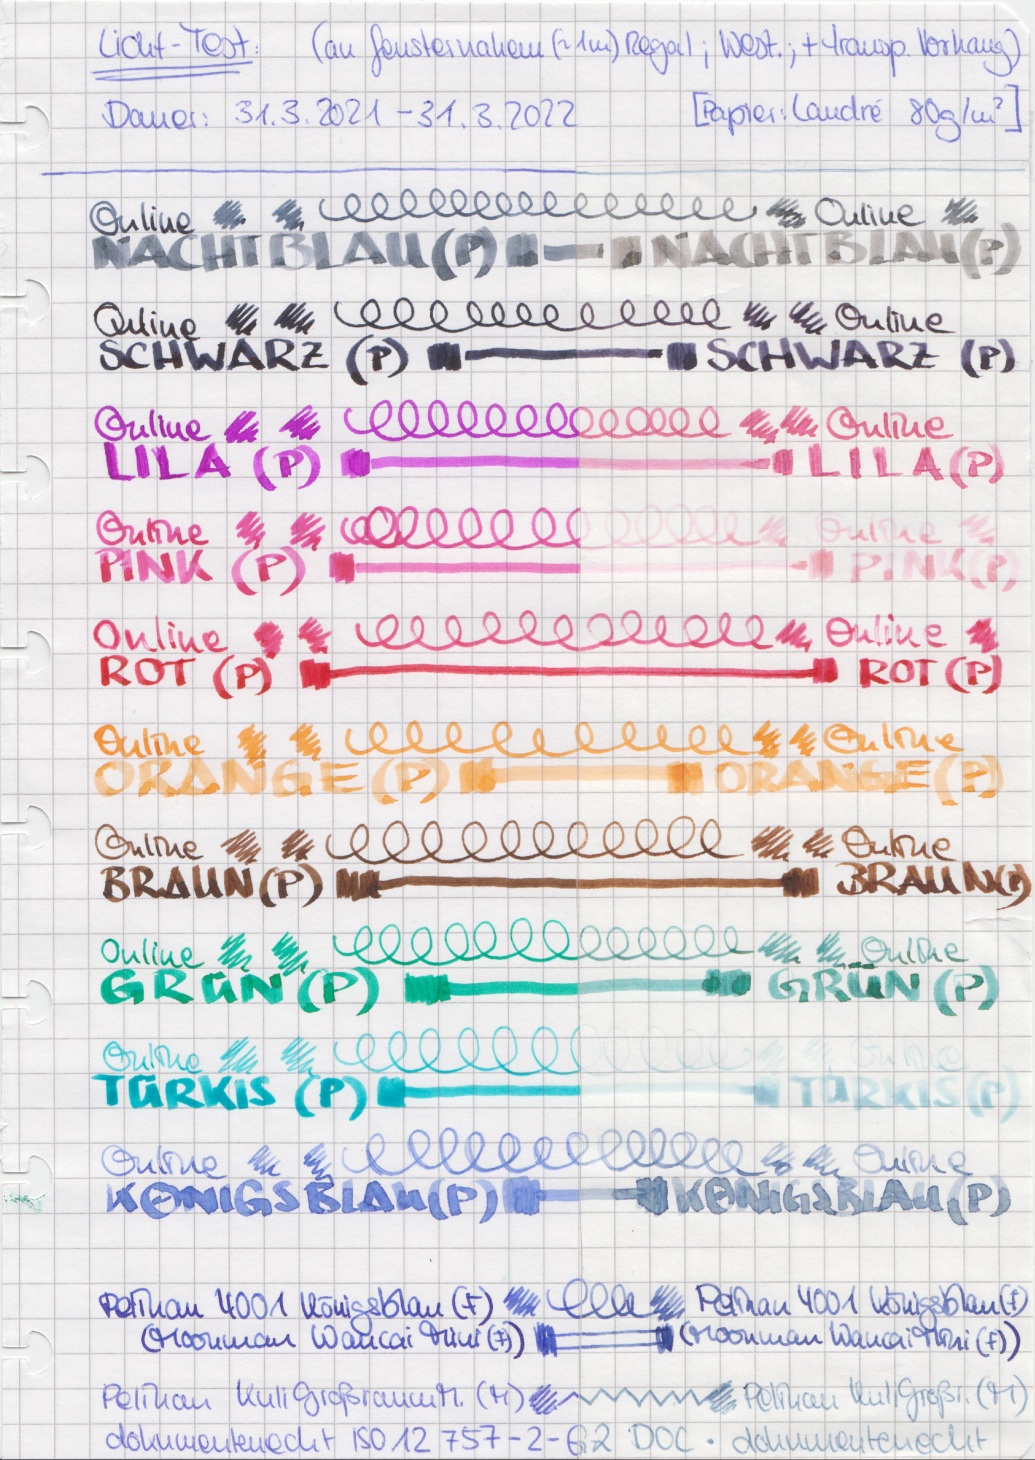 Licht-Test: (an fensternahem (~1m) Regal; West.; + transp. Vorhang)
Dauer: 31.3.2021 - 31.3.2022 [Papier: Landré 80g/m²]
Online Online
NACHTBLAU (P) NACHTBLAU (P)
Online Online
SCHWARZ (P) SCHWARZ (P)
Online Online
LILA (P) LILA (P)
Online Online
PINK (P) PINK (P)
Online Online
ROT (P) ROT (P)
Online Online
ORANGE (P) ORANGE (P)
Online Online
BRAUN (P) BRAUN (P)
Online Online
GRÜN (P) GRÜN (P)
Online Online
TÜRKIS (P) TÜRKIS (P)
Online Online
KÖNIGSBLAU (P) KÖNIGSBLAU (P)
Pelikan 4001 Königsblau (F) Pelikan 4001 Königsblau (F)
(Moonman Wancai Mini (F)) (Moonman Wancai Mini (F))
Pelikan Kuli Großraumm. (M) Pelikan Kuli Großr. (M)
dokumentenecht ISO 12 757-2-G2 DOC. dokumentenecht